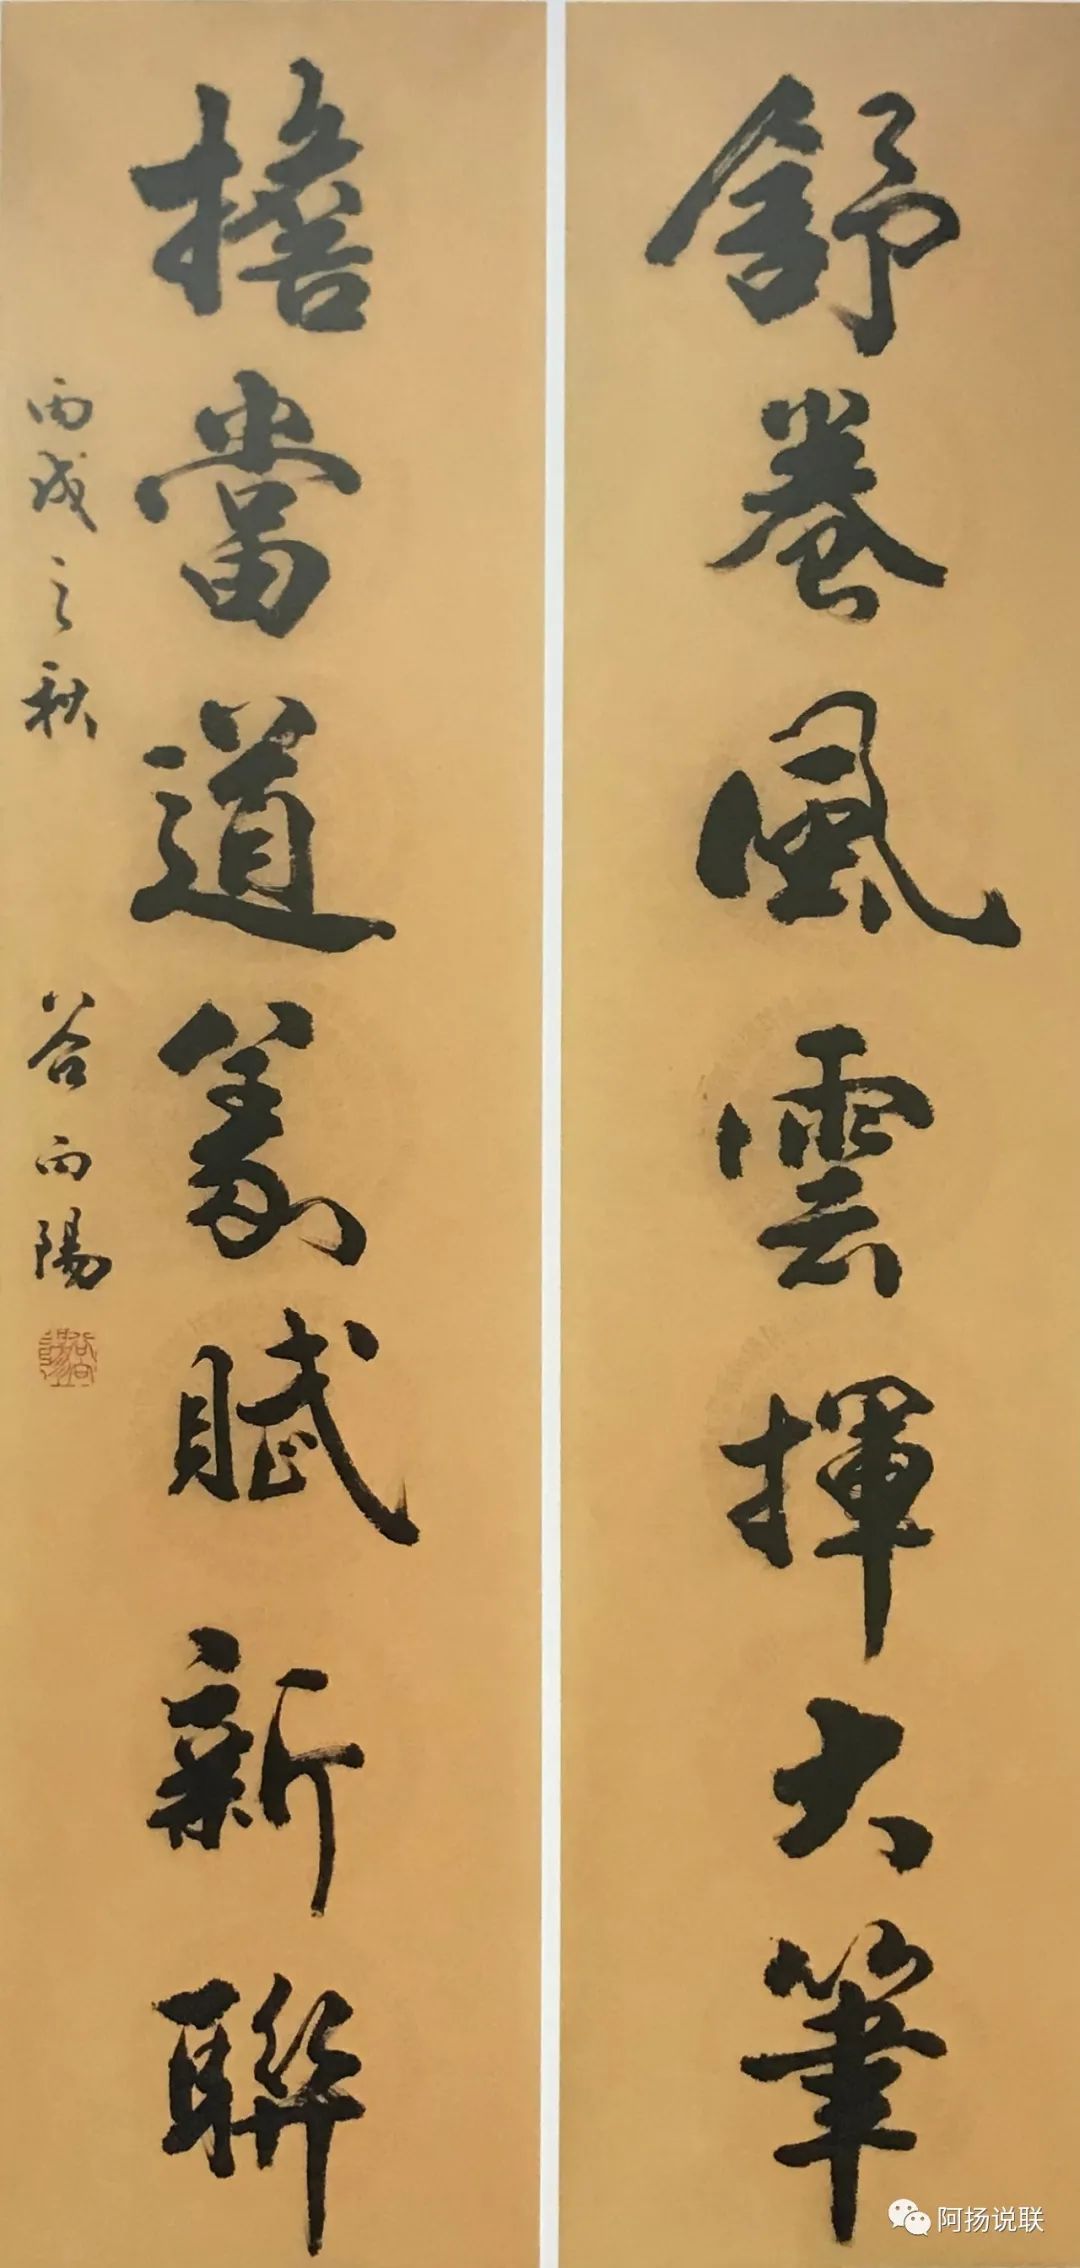 舒卷風雲揮大筆
擔當道義賦新聯
丙戌之秋
谷向陽
谷向陽
阿扬说联